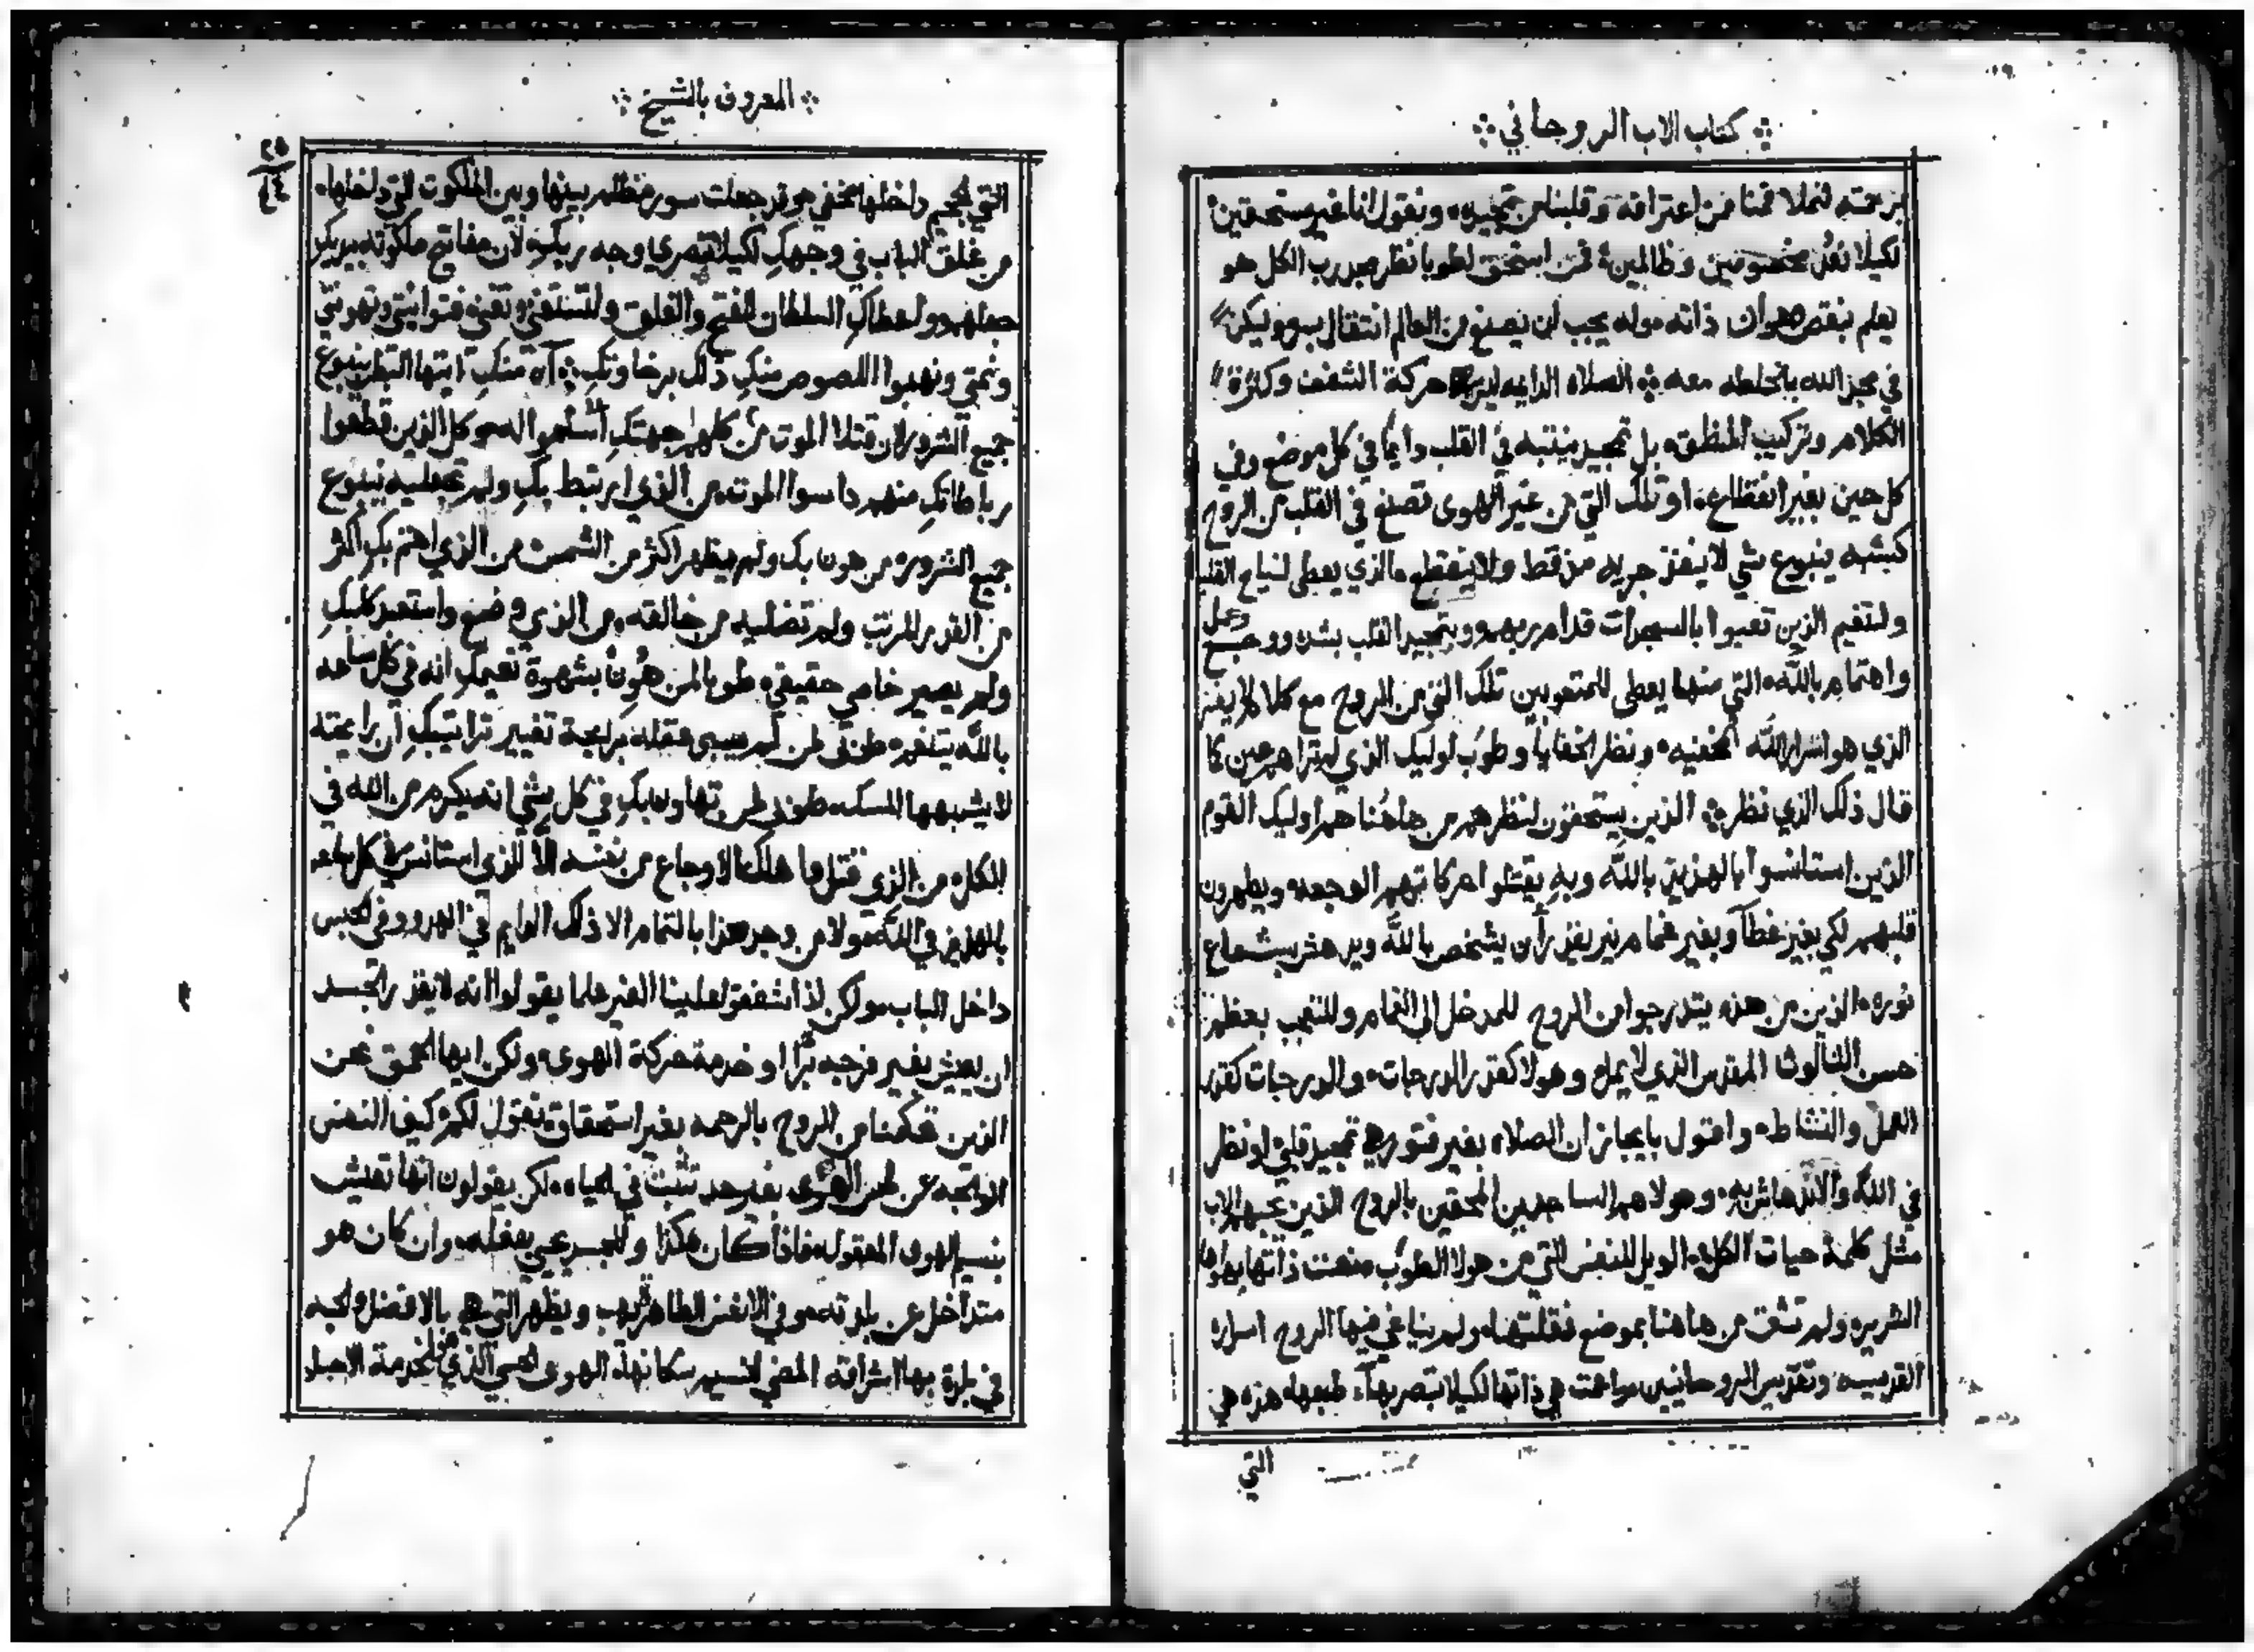 كتاب الاب الروحاني
برحمته لنملا فمنا من اعترافه وقلبنا من تمجيده ونقول انا غير مستحقين
لكيلا نعد مخصومين وظالمين فمن استحق لطوبا نظر مجد رب الكل هو
يعلم بنقص هوان ذاته وله يجب ان يصنع من العالم انتقال
في مجد الله باتحاطه معه الصلاه الدايمه ليس حركة الشفف وكثرة
الكلام وتركيب المنطق بل تمجيد ينتبه في القلب دايما في كل موضع وفي
كل حين بغير انقطاع او تلك التي من غير الهوى تصنع في القلب من الروح
كشبه ينبوع شي لا ينفذ جريه من قط ولا ينقطع الذي يعطى لنياح القلب
ولنعيم الذين تعبوا بالسهرات قدام ربهم وبتمجيد القلب بشده ووجع وعمل
واهتمام بالله التي منها يعطى للمتعوبين تلك التي من الروح مع كلام لا يفتر
الذي هو اسرار الله الخفيه ونظر الخفايا وطوب لوليك الذي لم تراهم عين كما
قال ذلك الذي نظر الذين يستحقون لنظرهم من هاهنا هم اوليك القوم
الذين استانسوا بالهذيذ بالله وبه يقتلوا حركاتهم الوجعه ويطهرون
قلبهم لكي بغير غطا وبغير غمام نير يقدر ان يشخص بالله ويدهش بشعاع
نوره الذين من هذه يتدرجوا من الروح للمدخل الى التمام وللتعجب بعظم
حسن الثالوث المقدس الذي لا يمل وهولا كقدر الدرجات والدرجات كقدر
العمل والنشاط واقول بايجاز ان الصلاه بغير فتور هي تمجيد قلبي او نظر
في الله والاندهاش به وهولا هم الساجدين المحقين بالروح الذين يحبهم الاب
مثل كلمة حيات الكل الويل للنفس التي من هولا الطوب منعت ذاتها بهواها
الشرير ولم تشق من هاهنا بموضع فقلتها ولم يناغي فيها الروح اسراره
القدسيه وتقديس الروحانيين واعمت هي ذاتها لكيلا تبصر بهاء طبعها هذه هي
التي
المعروف بالشيخ
٢٥
٤٤
التي لجحيم داخلها مخفي وقد جعلت سور مظلم بينها وبين الملكوت التي داخلها
من غلق الباب في وجهك لكيلا تبصري وجه ربك لان مفاتيح ملكوته بيديك
جعلهم واعطاك السلطان للفتح والغلق
ونمتي ونهبوا اللصوص منك ذلك برخاوتك آه منك ايتها البطر ينبوع
جميع الشرور لان قتلا الموت من كلهم جهتك اسلموا له وكل الذين قطعوا
رباطاتك منهم داسوا الموت من الذي ارتبط بك ولم تجعليه ينبوع
جميع الشرور من هون بك ولم يظهر اكثر من الشمس من الذي اهتم بك اكثر
من القدر المرتب ولم تضليه من خالقه من الذي وضع واستعبد كليك
ولم يصير خاصي حقيقي طوبا لمن هون بشهوة نعيمك انه في كل ساعه
بالله يتنعم طوبى لمن لم يسبي عقله برايحة تغيير تراتيبك ان رايحته
لا يشبهها المسك طوبى لمن تهاون بك في كل شي انه يكرم من الله في
الكل من الذي قتل واهلك الاوجاع من نفسه الا الذي استانس في كل ساعه
بالهذيذ في الله ولا من وجد هذا بالتمام الا ذلك الدايم في الهدو وفي الحبس
داخل الباب ولكن لذا شغفوا علينا الغير علما يقولوا انه لا يقدر الجسد
ان يعيش بغير مزجه برا او خدمة حركة الهوى ولكن ايها الحمق نحن
الذين تحكمنا من الروح بالرحمه بغير استحقاق نقول لكم كيف النفس
الواتجه عن لمس الهوى بغير حد تثبت في الحياه لكن يقولون انها تعيش
بنسيم الهوى المعقول فاذا كان هكذا وللجسد يحيي بفعله وان كان هو
متداخل عن بلدته وفي الانفس الطاهره يهب ويظهر التي هي بالافضل واحبه
في بلدة بها اشراقه المضي لنسيم سكانها الهوى الحسي الذي خلق لخدمة الاجساد